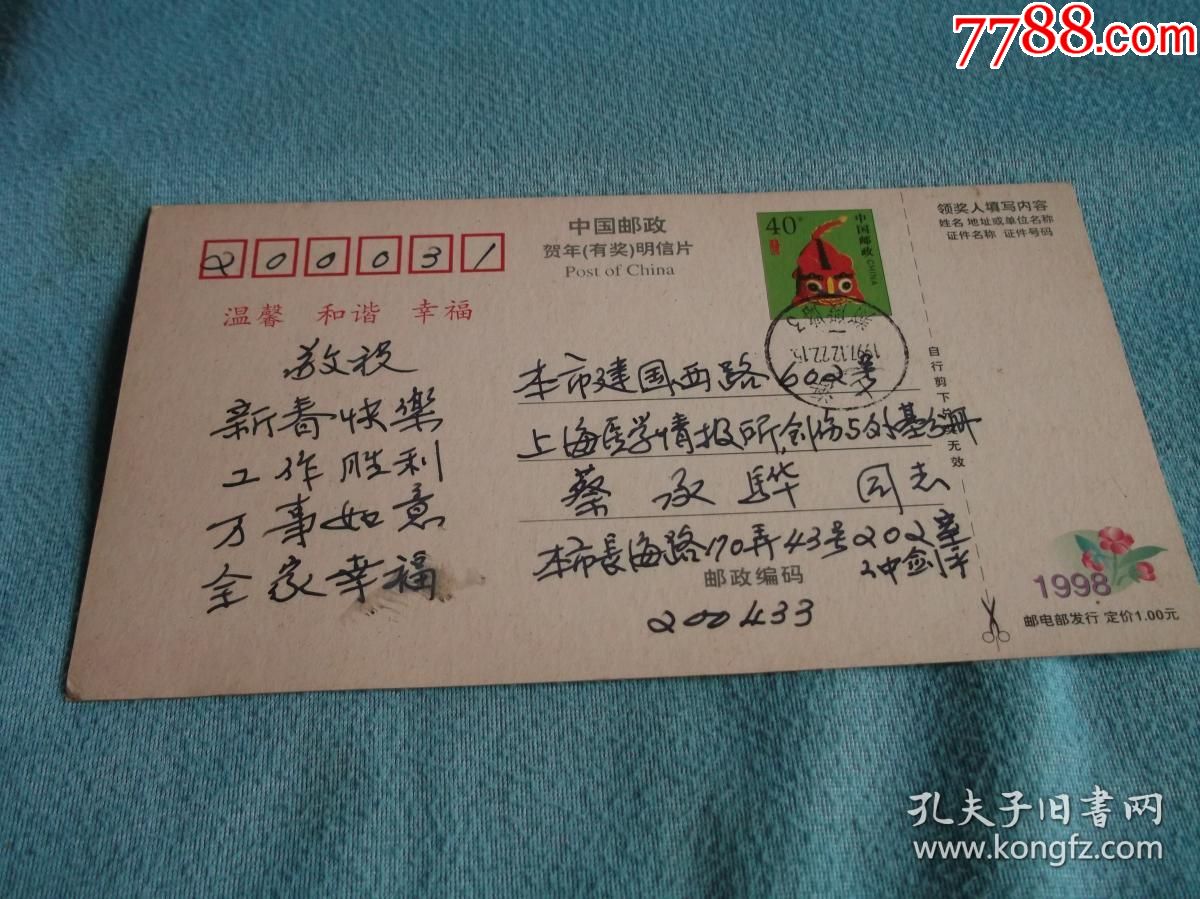 7788.com
中国邮政
贺年(有奖)明信片
Post of China
40
中国邮政 CHINA
领奖人填写内容
姓名 地址或单位名称
证件名称 证件号码
200031
温馨 和谐 幸福
敬祝
新春快樂
工作胜利
万事如意
全家幸福
1997.12.22.15
本市建国西路602号
上海医学情报所创伤与外基分册
蔡 承 骅 同志
本市長海路170弄43号202室
剑平
邮政编码
200433
自行剪下
无效
1998
邮电部发行 定价1.00元
孔夫子旧书网
www.kongfz.com